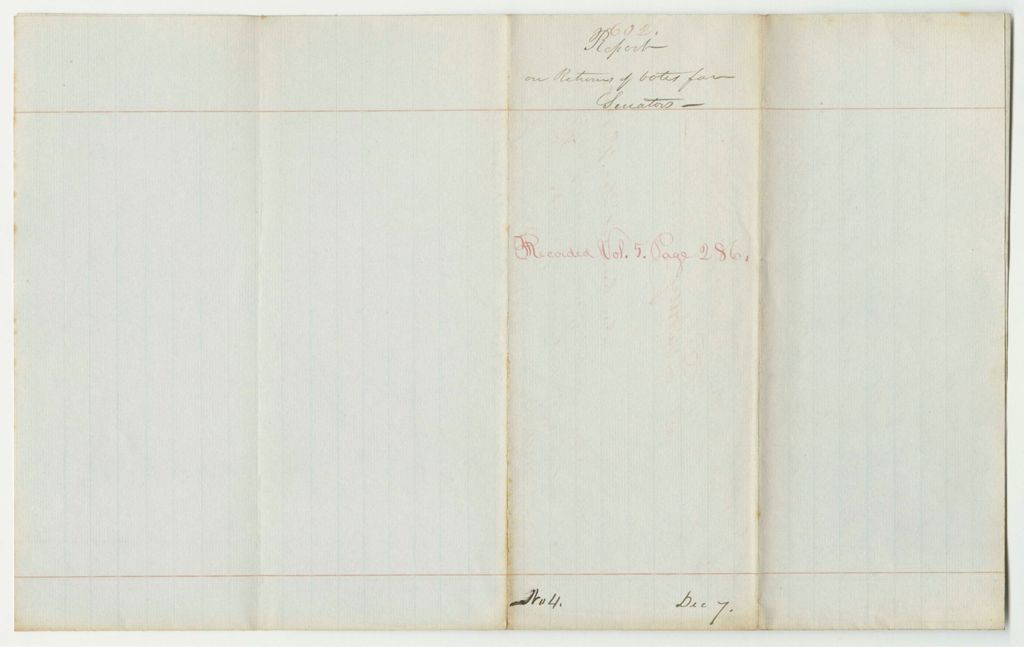 602.
Report
on Returns of votes for
Senators —
Recorded Vol. 5. Page 286.
No 4. Dec 7.